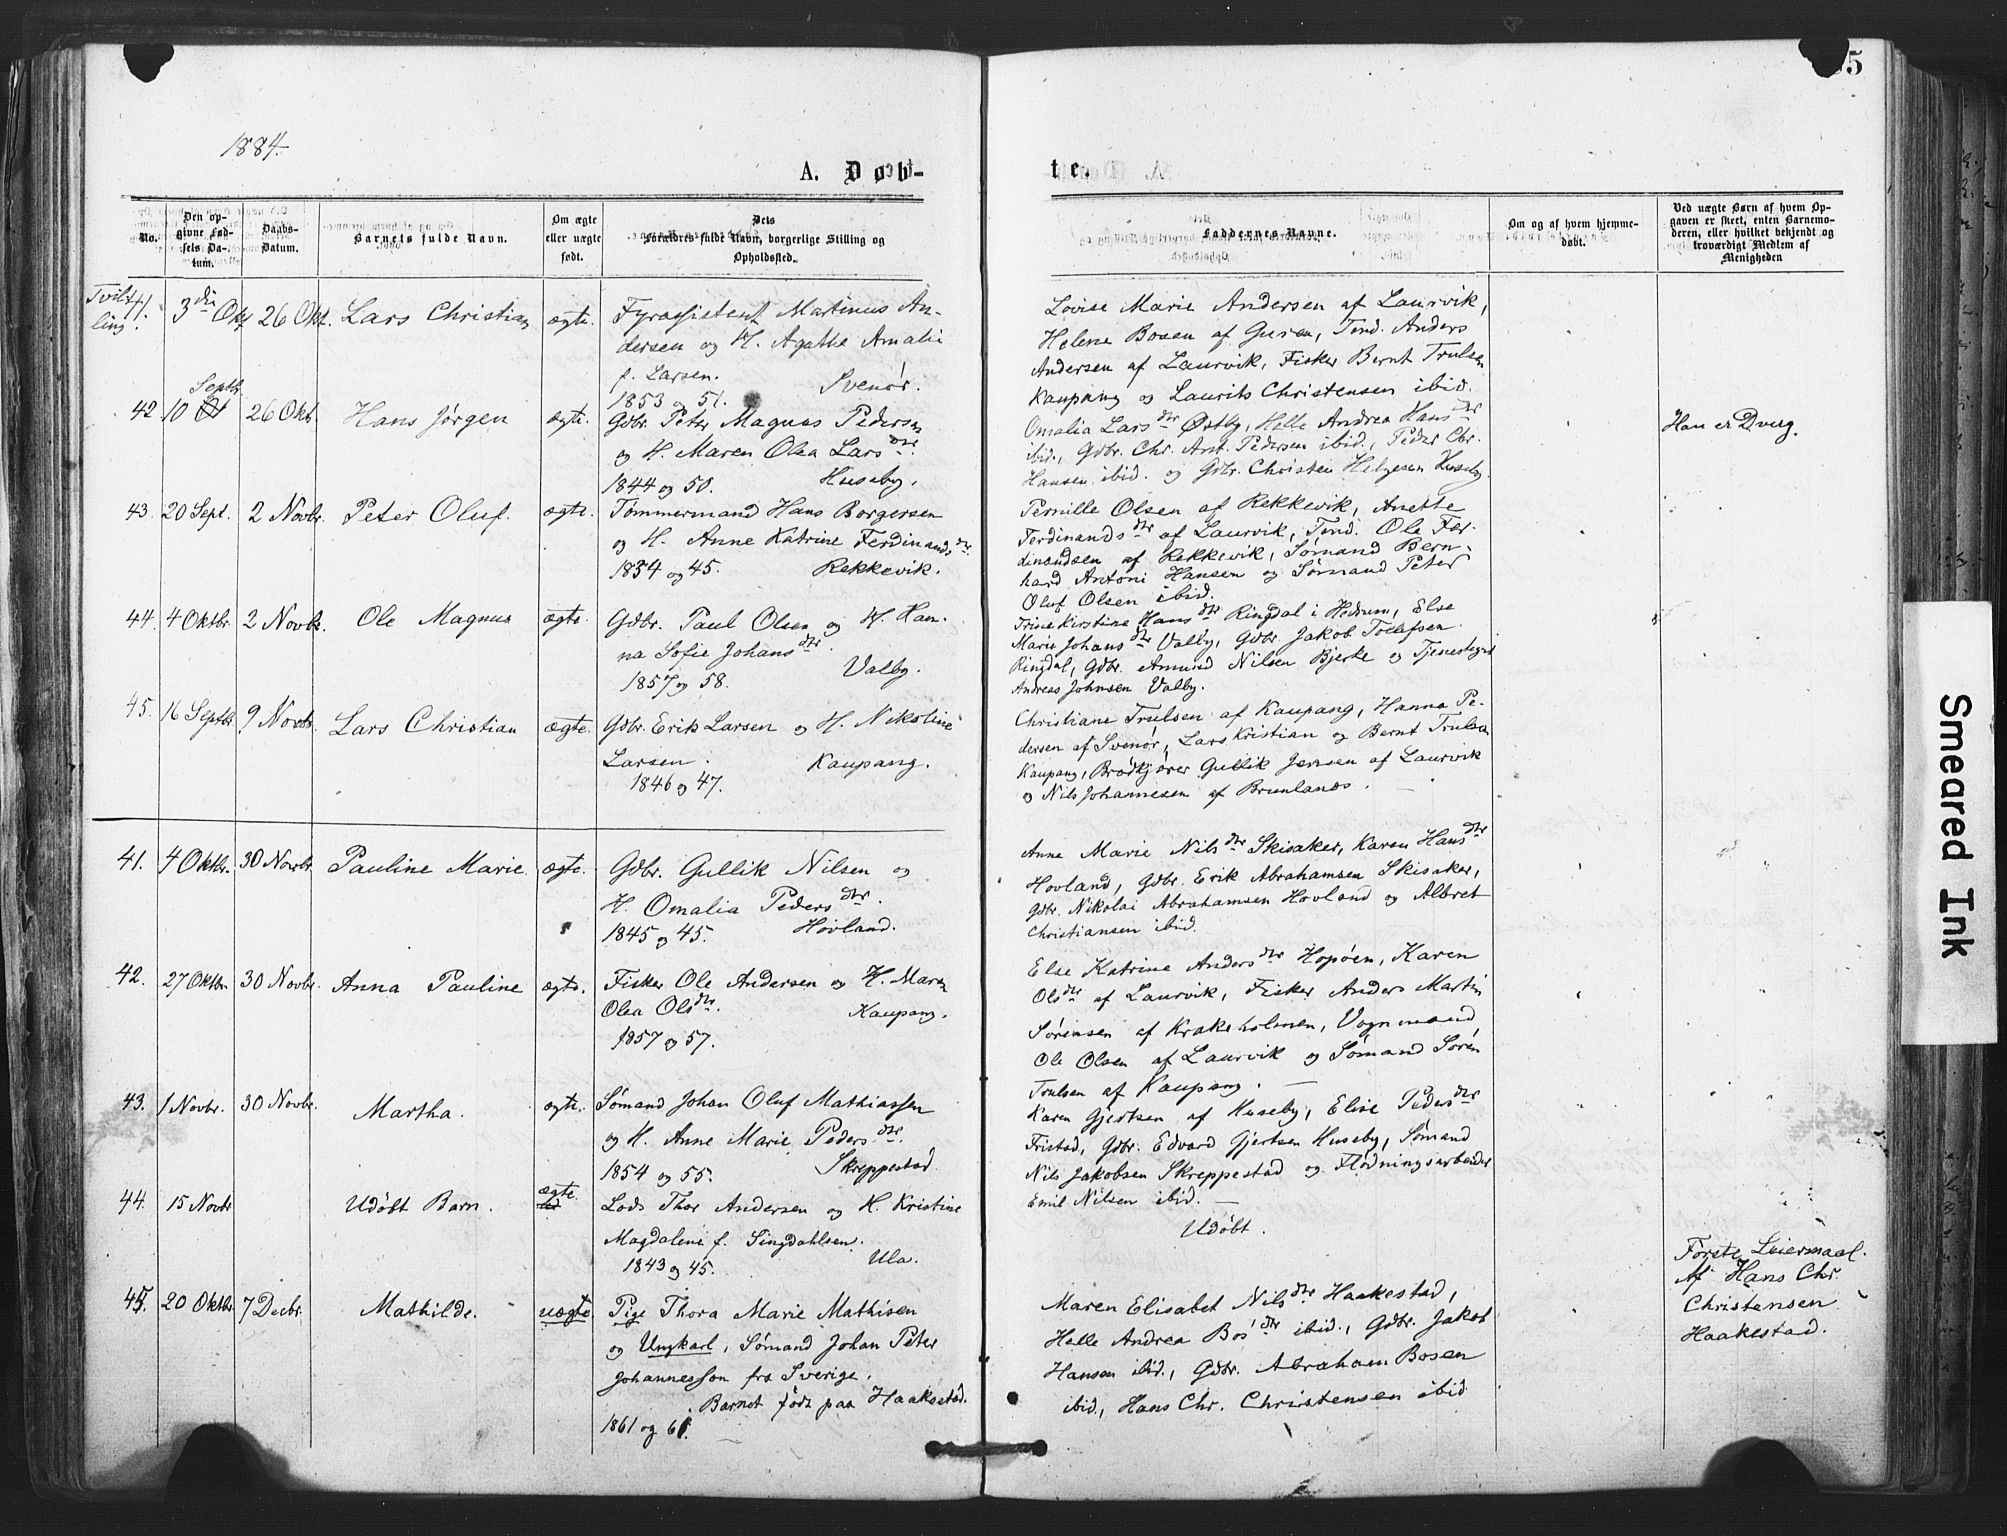 1884.
A. Døb-
te.
No.
Den op-
givne Fød-
sels Da-
tum.
Daabs-
Datum.
Barnets fulde Navn.
Om ægte
eller uægte
født.
Dets
Forældres fulde Navn, borgerlige Stilling og
Opholdssted.
Faddernes Navne.
Om og af hvem hjemme-
døbt.
Ved uægte Børn af hvem Op-
gaven er skeet, enten Barnemo-
deren, eller hvilket bekjendt og
troværdigt Medlem af
Menigheden
Tvil-
ling
41. 3die Okt 26 Okt. Lars Christian ægte. Fyrassistent Martinus An-
dersen og H. Agathe Amalie
f. Larsen. Svenør.
1853 og 51.
Lovise Marie Andersen af Laurvik,
Helene Bosen af Guren, Tmd. Anders
Andersen af Laurvik, Fisker Bernt Trulsen
Kaupang og Laurits Christensen ibid.
42 10 Septbr 26 Oktb. Hans Jørgen ægte. Gdbr. Peter Magnus Pedersen
og H. Maren Olea Larsdtr.
1844 og 50. Huseby.
Omalia Larsdtr Østby, Helle Andrea Hansdtr
ibid., Gdbr. Chr. Ant. Pedersen ibid., Peder Chr.
Hansen ibid. og Gdbr. Christen Helgesen Huseby.
Han er Dverg.
43. 20 Sept. 2 Novbr. Peter Oluf. ægte. Tømmermand Hans Borgersen
og H. Anne Katrine Ferdinandsdtr
1834 og 45. Rekkevik.
Pernille Olsen af Rekkevik, Anette
Ferdinandsdtr af Laurvik, Tmd. Ole Fer-
dinandsen af Rekkevik, Sømand Bern-
hard Antoni Hansen og Sømand Peter
Oluf Olsen ibid.
44. 4 Oktbr 2 Novbr. Ole Magnus ægte. Gdbr. Paul Olsen og H. Han-
na Sofie Johansdtr.
1857 og 58. Valby.
Trine Kirstine Hansdtr Ringdal i Hedrum, Else
Marie Johansdtr Valby, Gdbr. Jakob Tollefsen
Ringdal, Gdbr. Amund Nilsen Bjerke og Tjenestegut
Andreas Johnsen Valby.
45. 16 Septbr. 9 Novbr. Lars Christian ægte. Gdbr. Erik Larsen og H. Nikoline
Larsen. Kaupang.
1846 og 47.
Christiane Trulsen af Kaupang, Hanna Pe-
dersen af Svenør, Lars Kristian og Bernt Trulsen
Kaupang, Brødkjører Gullik Jensen af Laurvik
og Nils Johannesen af Brunlanes.
41. 4 Oktbr. 30 Novbr. Pauline Marie ægte. Gdbr. Gullik Nilsen og
H. Omalia Pedersdtr.
1845 og 45. Hovland.
Anne Marie Nilsdtr Skisaker, Karen Hansdtr
Hovland, Gdbr. Erik Abrahamsen Skisaker,
Gdbr. Nikolai Abrahamsen Hovland og Albret
Christiansen ibid.
42. 27 Oktbr. 30 Novbr. Anna Pauline ægte. Fisker Ole Andersen og H. Maren
Olea Olsdtr. Kaupang.
1857 og 57.
Else Katrine Andersdtr Hopøen, Karen
Olsdtr af Laurvik, Fisker Anders Martin
Sørensen af Krakeholmen, Vognmand
Ole Olsen af Laurvik og Sømand Søren
Trulsen af Kaupang.
43. 1 Novbr. 30 Novbr. Martha. ægte. Sømand Johan Oluf Mathiassen
og H. Anne Marie Pedersdtr.
1854 og 55. Skreppestad
Karen Gjertsen af Huseby, Elise Pedersdtr
Fristad, Gdbr. Edvard Gjertsen Huseby, Sømand
Nils Jakobsen Skreppestad og Flødningsarbeider
Emil Nilsen ibid.
44. 15 Novbr Udøbt Barn. ægte. Lods Thor Andersen og H. Kristine
Magdalene f. Singdahlsen.
1843 og 45. Ula.
Udøbt.
45. 20 Oktbr. 7 Decbr. Mathilde. uægte Pige Thora Marie Mathisen
og Ungkarl, Sømand Johan Peter
Johannesson fra Sverige.
Barnet født paa Haakestad.
1861 og 61.
Maren Elisabet Nilsdtr Haakestad,
Helle Andrea Bosdtr ibid., Gdbr. Jakob
Hansen ibid., Gdbr. Abraham Bosen
ibid., Hans Chr. Christensen ibid
Første Leiermaal.
Af Hans Chr.
Christensen
Haakestad.
Smeared Ink